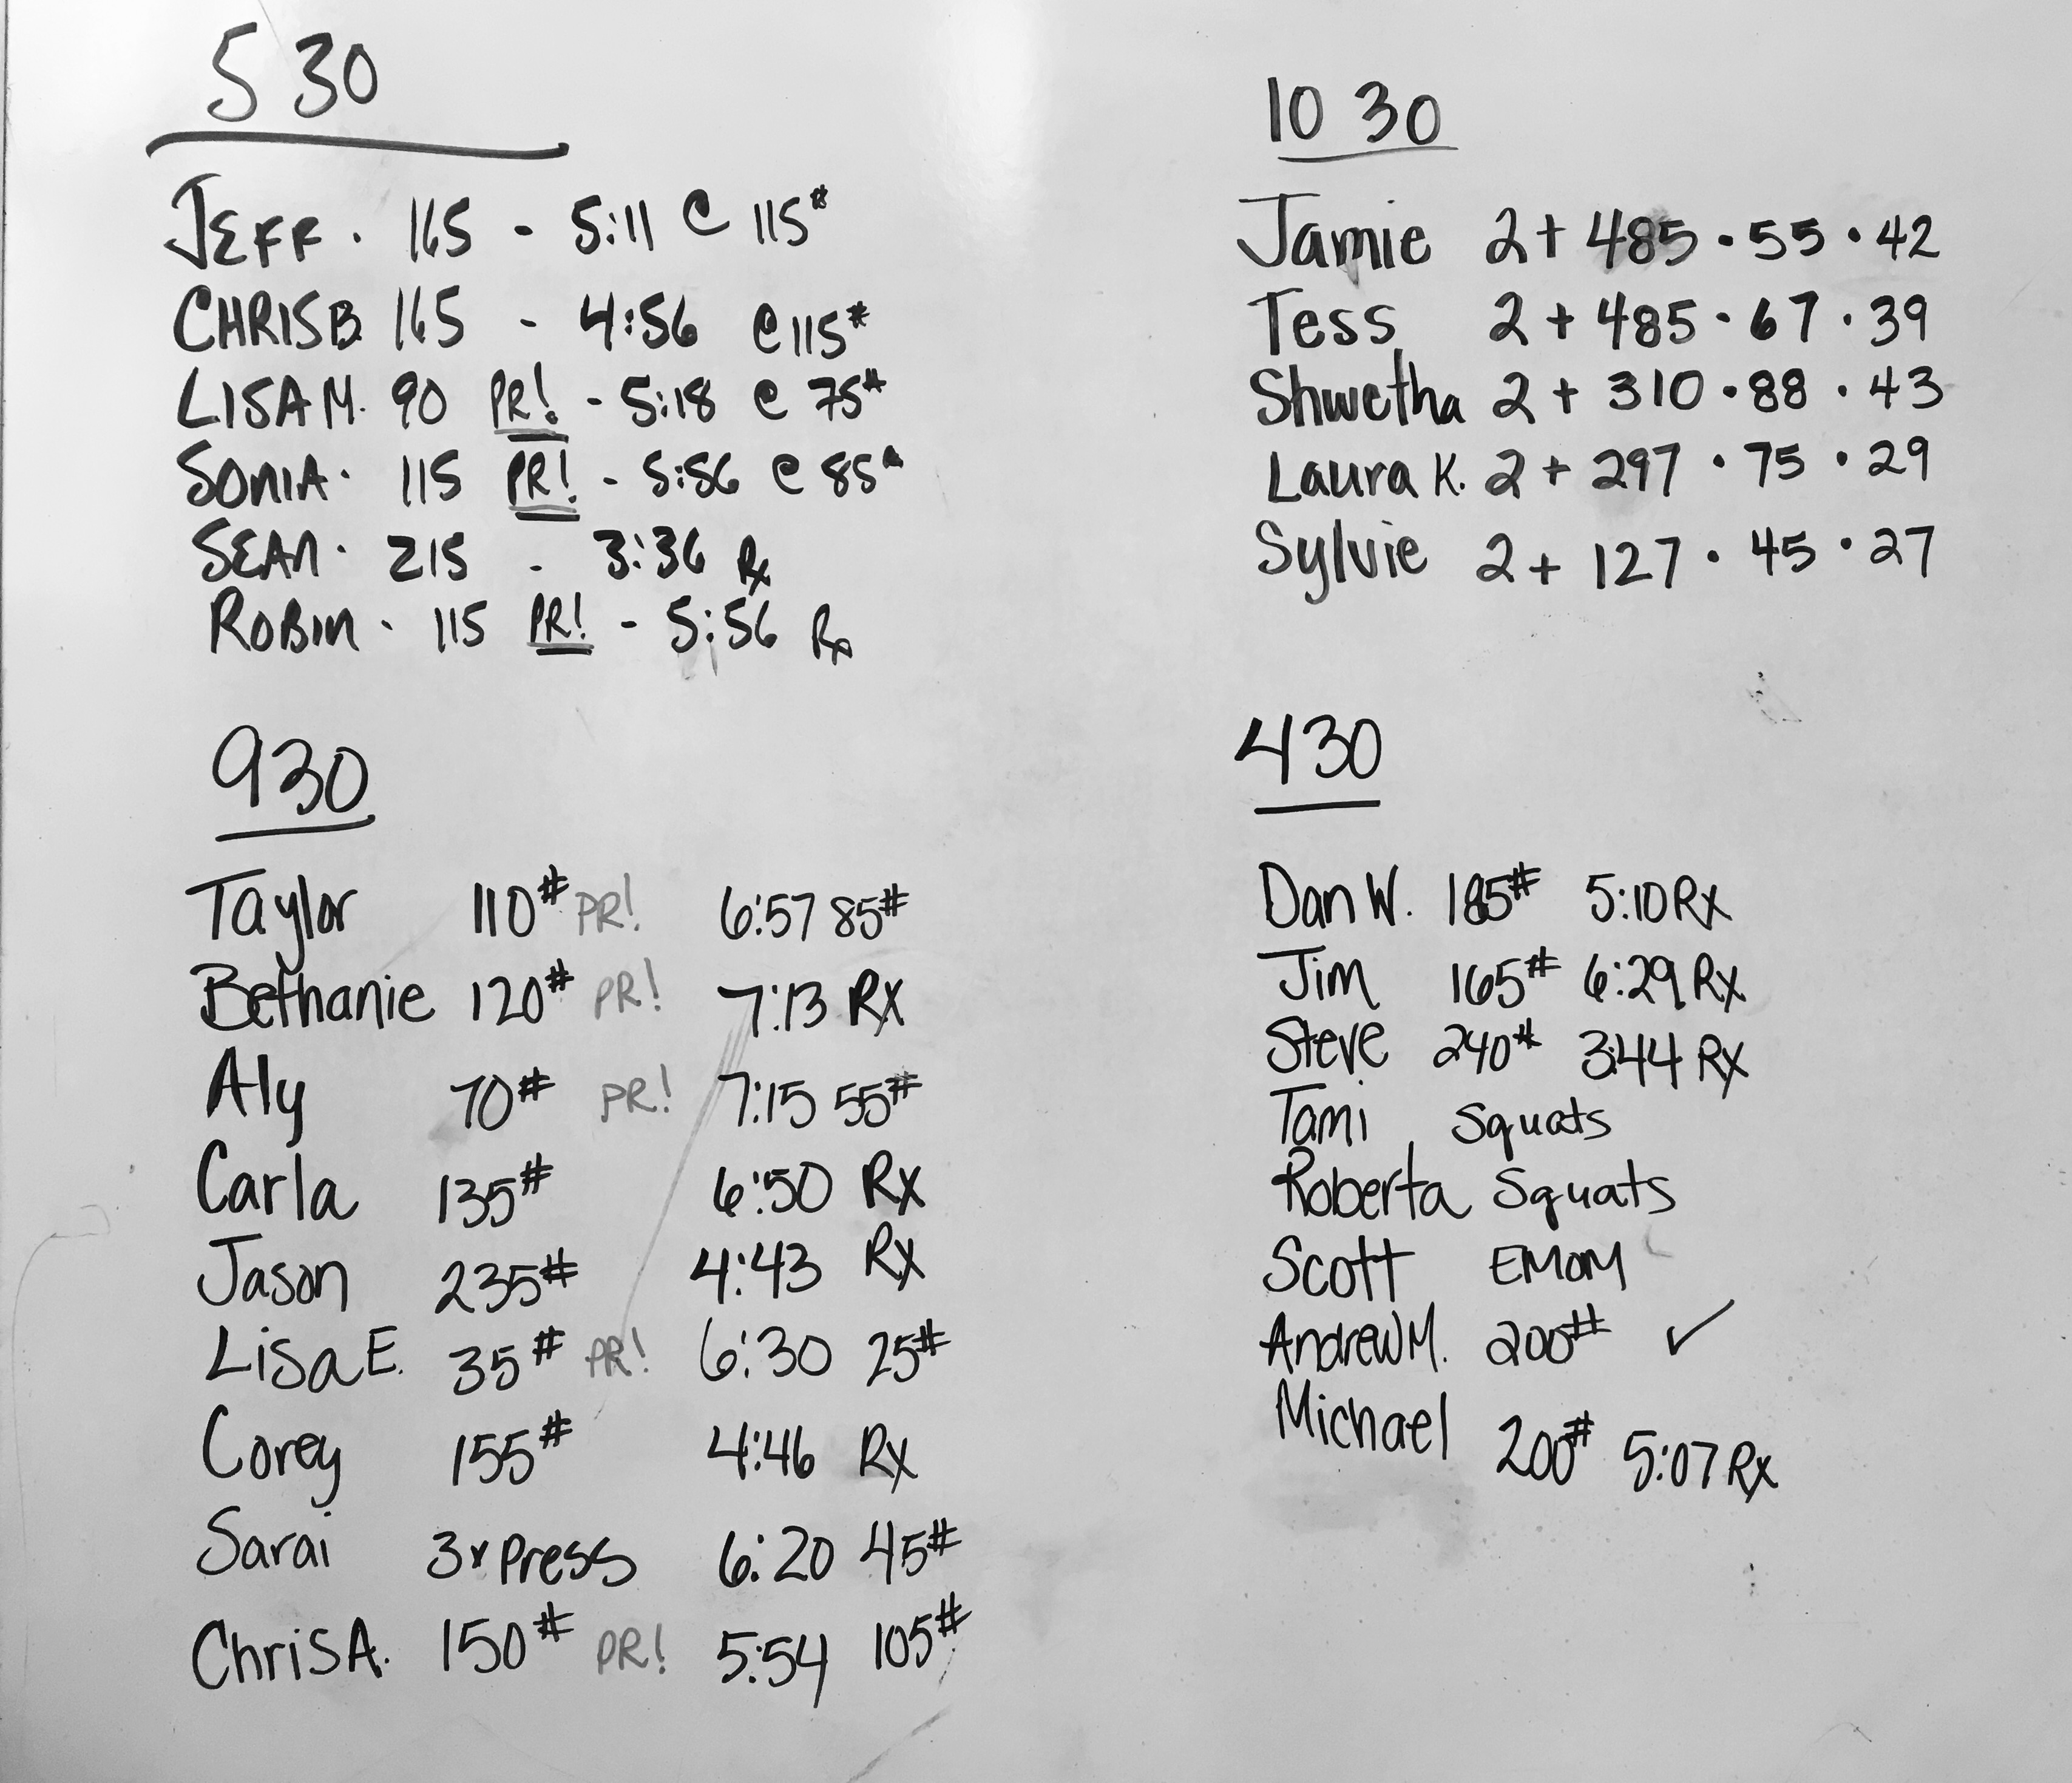 5 30
JEFF . 165 - 5:11 @ 115#
CHRIS B. 165 - 4:56 @ 115#
LISA M. 90 PR! - 5:18 @ 75#
SONIA . 115 PR! - 5:56 @ 85#
SEAN . 215 - 3:36 Rx
ROBIN . 115 PR! - 5:56 Rx
930
Taylor 110# PR! 6:57 85#
Bethanie 120# PR! 7:13 Rx
Aly 70# PR! 7:15 55#
Carla 135# 6:50 Rx
Jason 235# 4:43 Rx
Lisa E. 35# PR! 6:30 25#
Corey 155# 4:46 Rx
Sarai 3x Press 6:20 45#
Chris A. 150# PR! 5:54 105#
10 30
Jamie 2 + 485 • 55 • 42
Tess 2 + 485 • 67 • 39
Shwetha 2 + 310 • 88 • 43
Laura K. 2 + 297 • 75 • 29
Sylvie 2 + 127 • 45 • 27
430
Dan W. 185# 5:10 Rx
Jim 165# 6:29 Rx
Steve 240# 3:44 Rx
Tami Squats
Roberta Squats
Scott EMOM
Andrew M. 200# ✓
Michael 200# 5:07 Rx